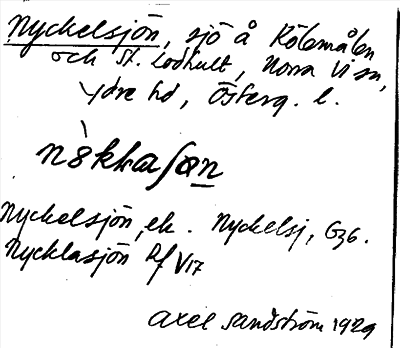 Nyckelsjön, sjö å Kölemålen
och St. Lodhult, Norra Vi sn,
Ydre hd, Österg. l.
Nyckelsjön, ek. Nyckelsj, G36.
Nycklasjön Rf V17
Axel Sandström 1929